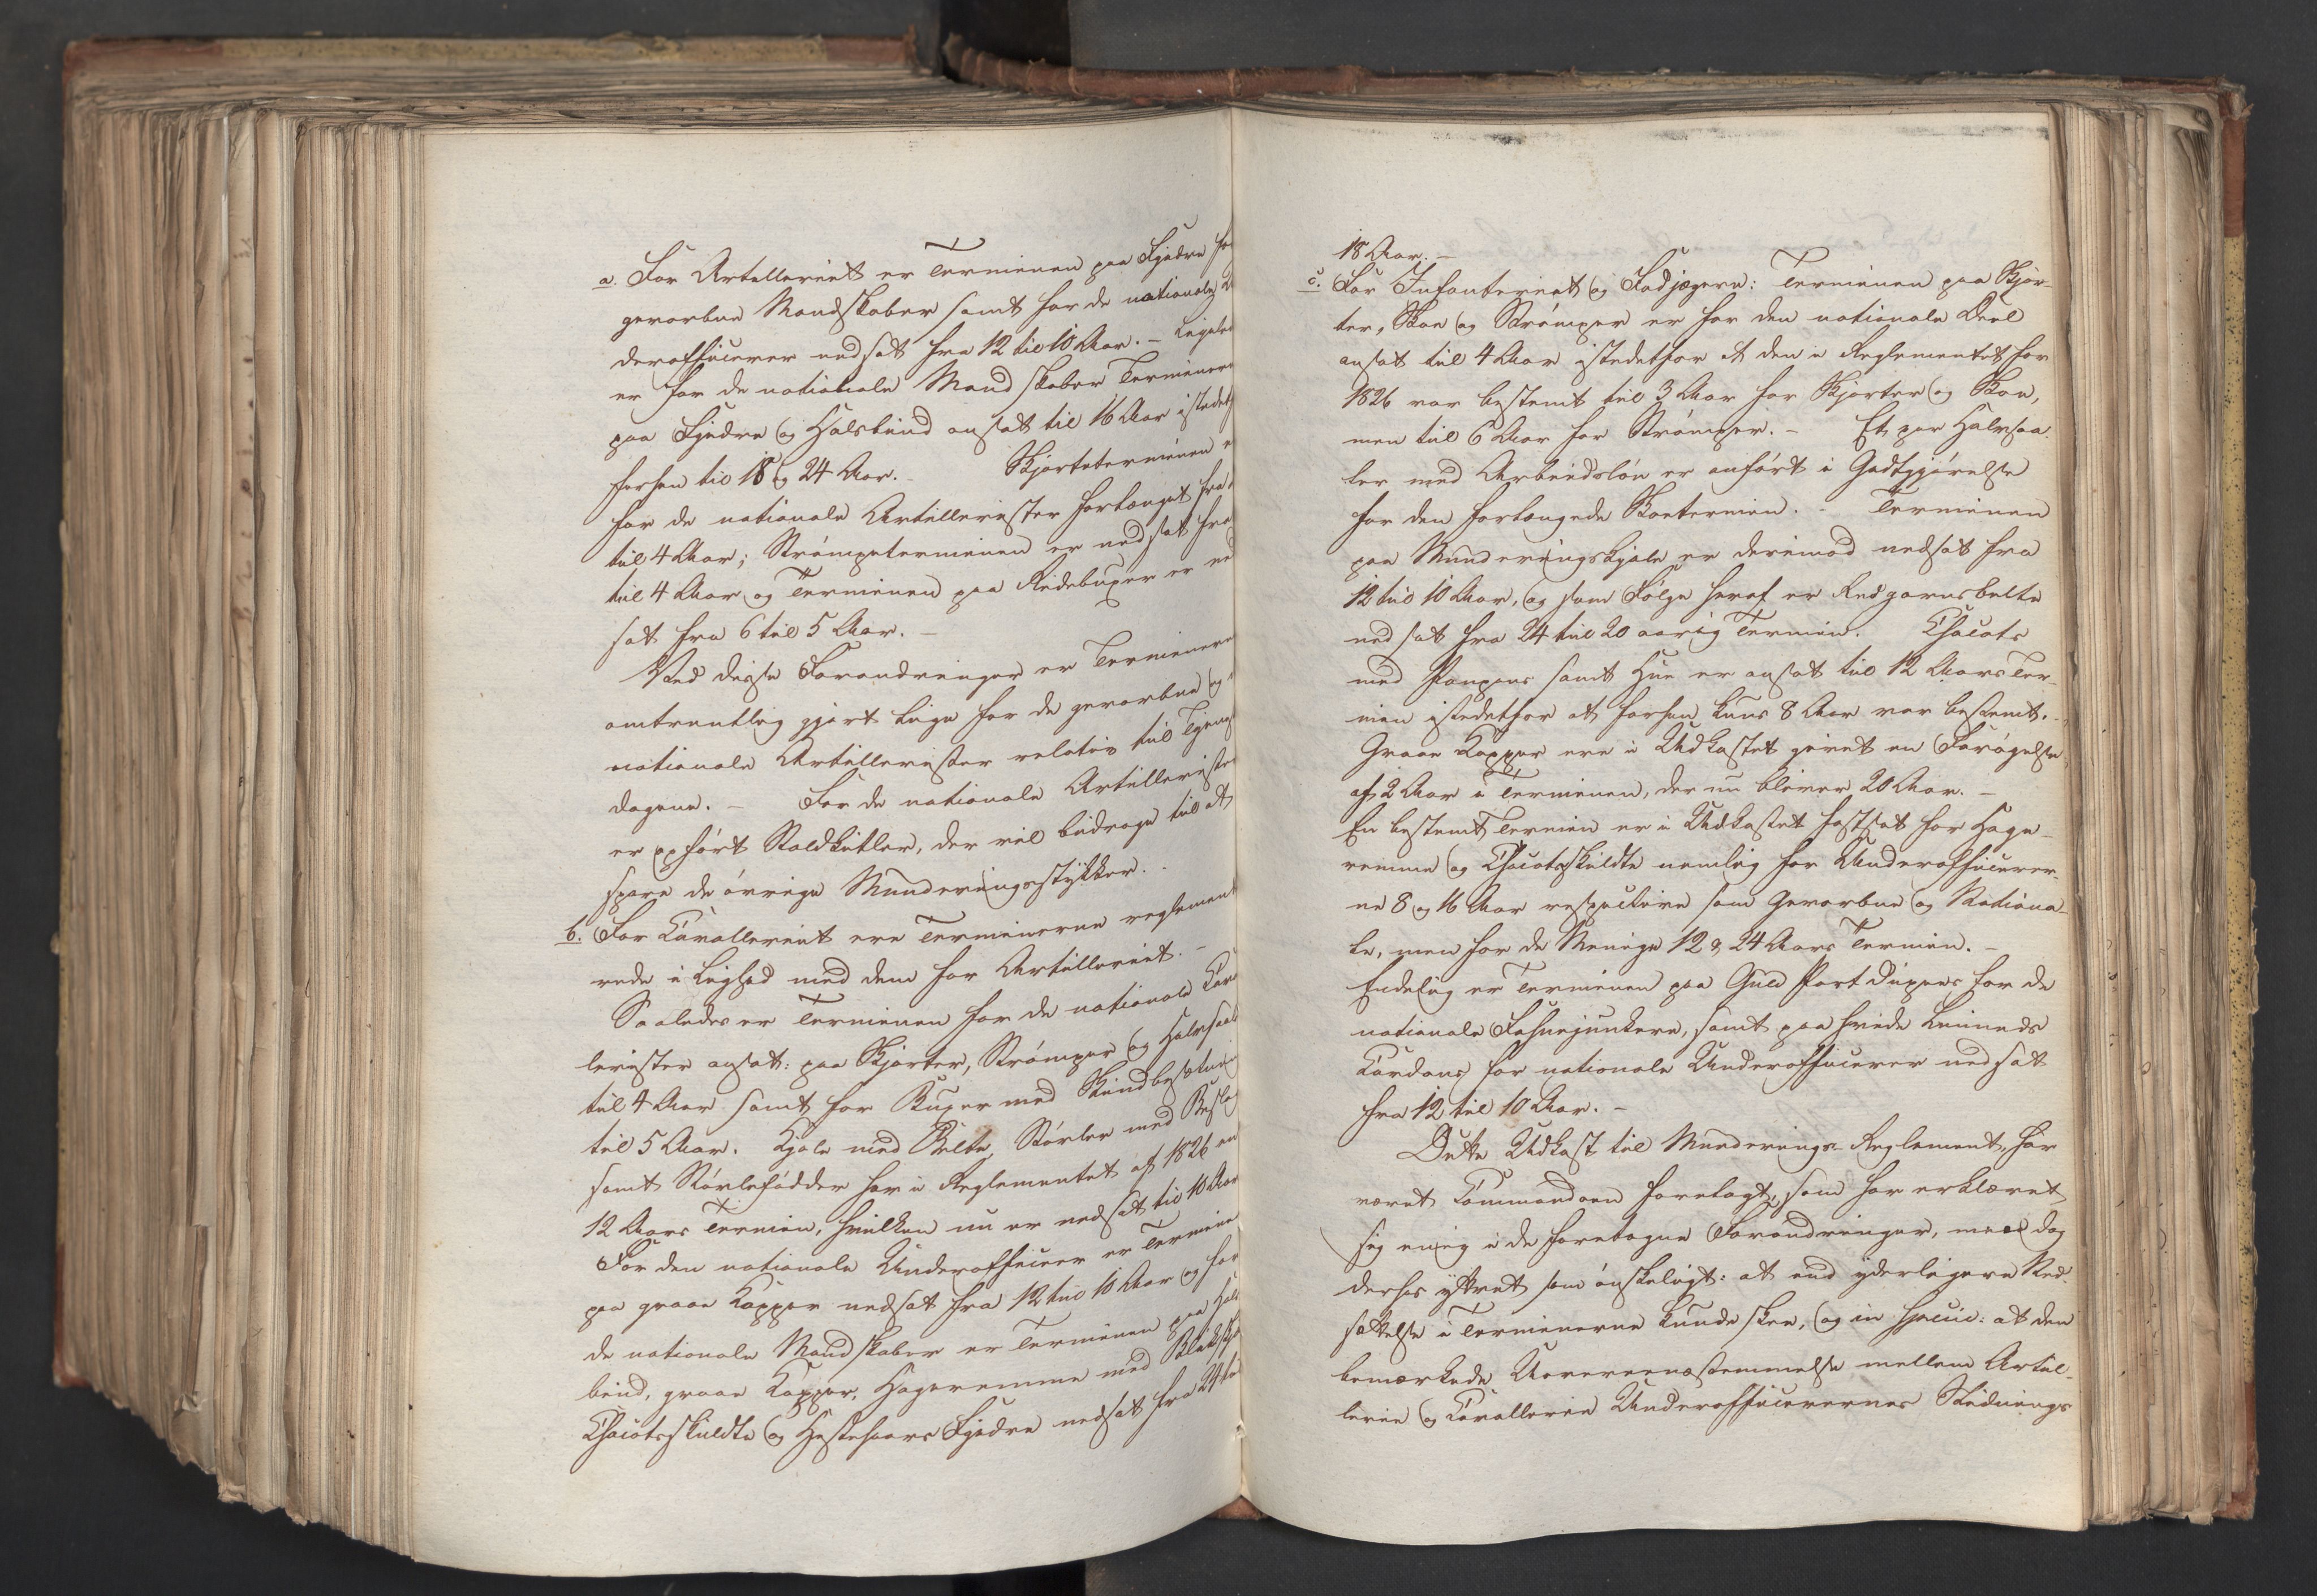 a. For Artilleriet er Terminen paa Fjedre for
gevorbne Mandskaber samt for de nationale
derofficierer nedsat fra 12 til 10 Aar. – Ligeled
er for de nationale Mandskaber Terminern
paa Fjedre og Halsbind ansat til 16 Aar istedet
forhen til 18 og 24 Aar. – Skjortetermienen
for de nationale Artillerister forlænget fra
til 4 Aar; Strömpeterminen er nedsat fra
til 4 Aar og Terminen paa Ridebuxer er ned
sat fra 6 til 5 Aar. –
Ved disse Forandringer er Terminern
omtrentlig gjort liige for de gevorbne og
nationale Artillerister relativ til Tjeneste
dagene. – For de nationale Artillerister
er opfört Staldkitler, der vil bidrage til at
spare de övrige Munderingsstykker. –
b. For Cavalleriet ere Terminerne reglemente
rede i Lighed med dem for Artilleriet. –
Saaledes er Terminen for de nationale Caval
lerister ansat: paa Skjorter, Strömper og Halvsaal
til 4 Aar samt for Buxer med Skindbesætning
til 5 Aar. Kjole med Belte, Stövler med Beslag
samt Stövlefödder har i Reglementet af 1826 en
12 Aars Termin, hvilken nu er nedsat til 10 Aar
For den nationale Underofficeer er Termine
paa graae Kapper nedsat fra 12 til 10 Aar og for
de nationale Mandskaber er Terminen paa Hals
bind, graae Kapper, Hageremme med
Chacotsskildte og Hestehaars Fjedre nedsat fra 24 til
18 Aar. –
c. For Infanteriet og Fodjægere: Terminen paa Skjor-
ter, Skoe og Strömper er for den nationale Deel
ansat til 4 Aar istedetfor at den i Reglementet for
1826 var bestemt til 3 Aar for Skjorter og Skoe,
men til 6 Aar for Strömper. – Et par Halvsaa-
ler med Arbeidslön er anfört i Godtgjörelse
for den forlængede Skoetermin. – Terminen
paa Munderingskjole er derimod nedsat fra
12 til 10 Aar, og som Fölge heraf er Redgarnsbelte
nedsat fra 24 til 20 aarig Termin. Chacots
med Pompons samt Hue er ansat til 12 Aars Ter-
min istedetfor at forhen kuns 8 Aar var bestemt. –
Graae Kapper ere i Udkastet givet en Forögelse
af 2 Aar i Terminen, der nu bliver 20 Aar. –
En bestemt Termin er i Udkastet fastsat for Hage-
remme og Chacotsskildte nemlig for Underofficerer-
ne 8 og 16 Aar respective som Gevorbne og Nationa-
le, men for de Menige 12 & 24 Aars Termin. –
Endelig er Terminen paa Guld Port d'epees for de
nationale Fahnejunkere, samt paa hvide Linneds
Cordons for nationale Underofficerer nedsat
fra 12 til 10 Aar. –
Dette Udkast til Munderings-Reglement, har
været Commandoen forelagt, som har erklæret
sig enig i de foretagne Forandringer, men dog
derhos yttret som önskeligt: at end yderligere Ned-
sættelse i Terminerne kunde skee, og in specie: at den
bemærkede Uovereensstemmelse mellem Artil-
lerie og Cavallerie Underofficerernes Klædnings